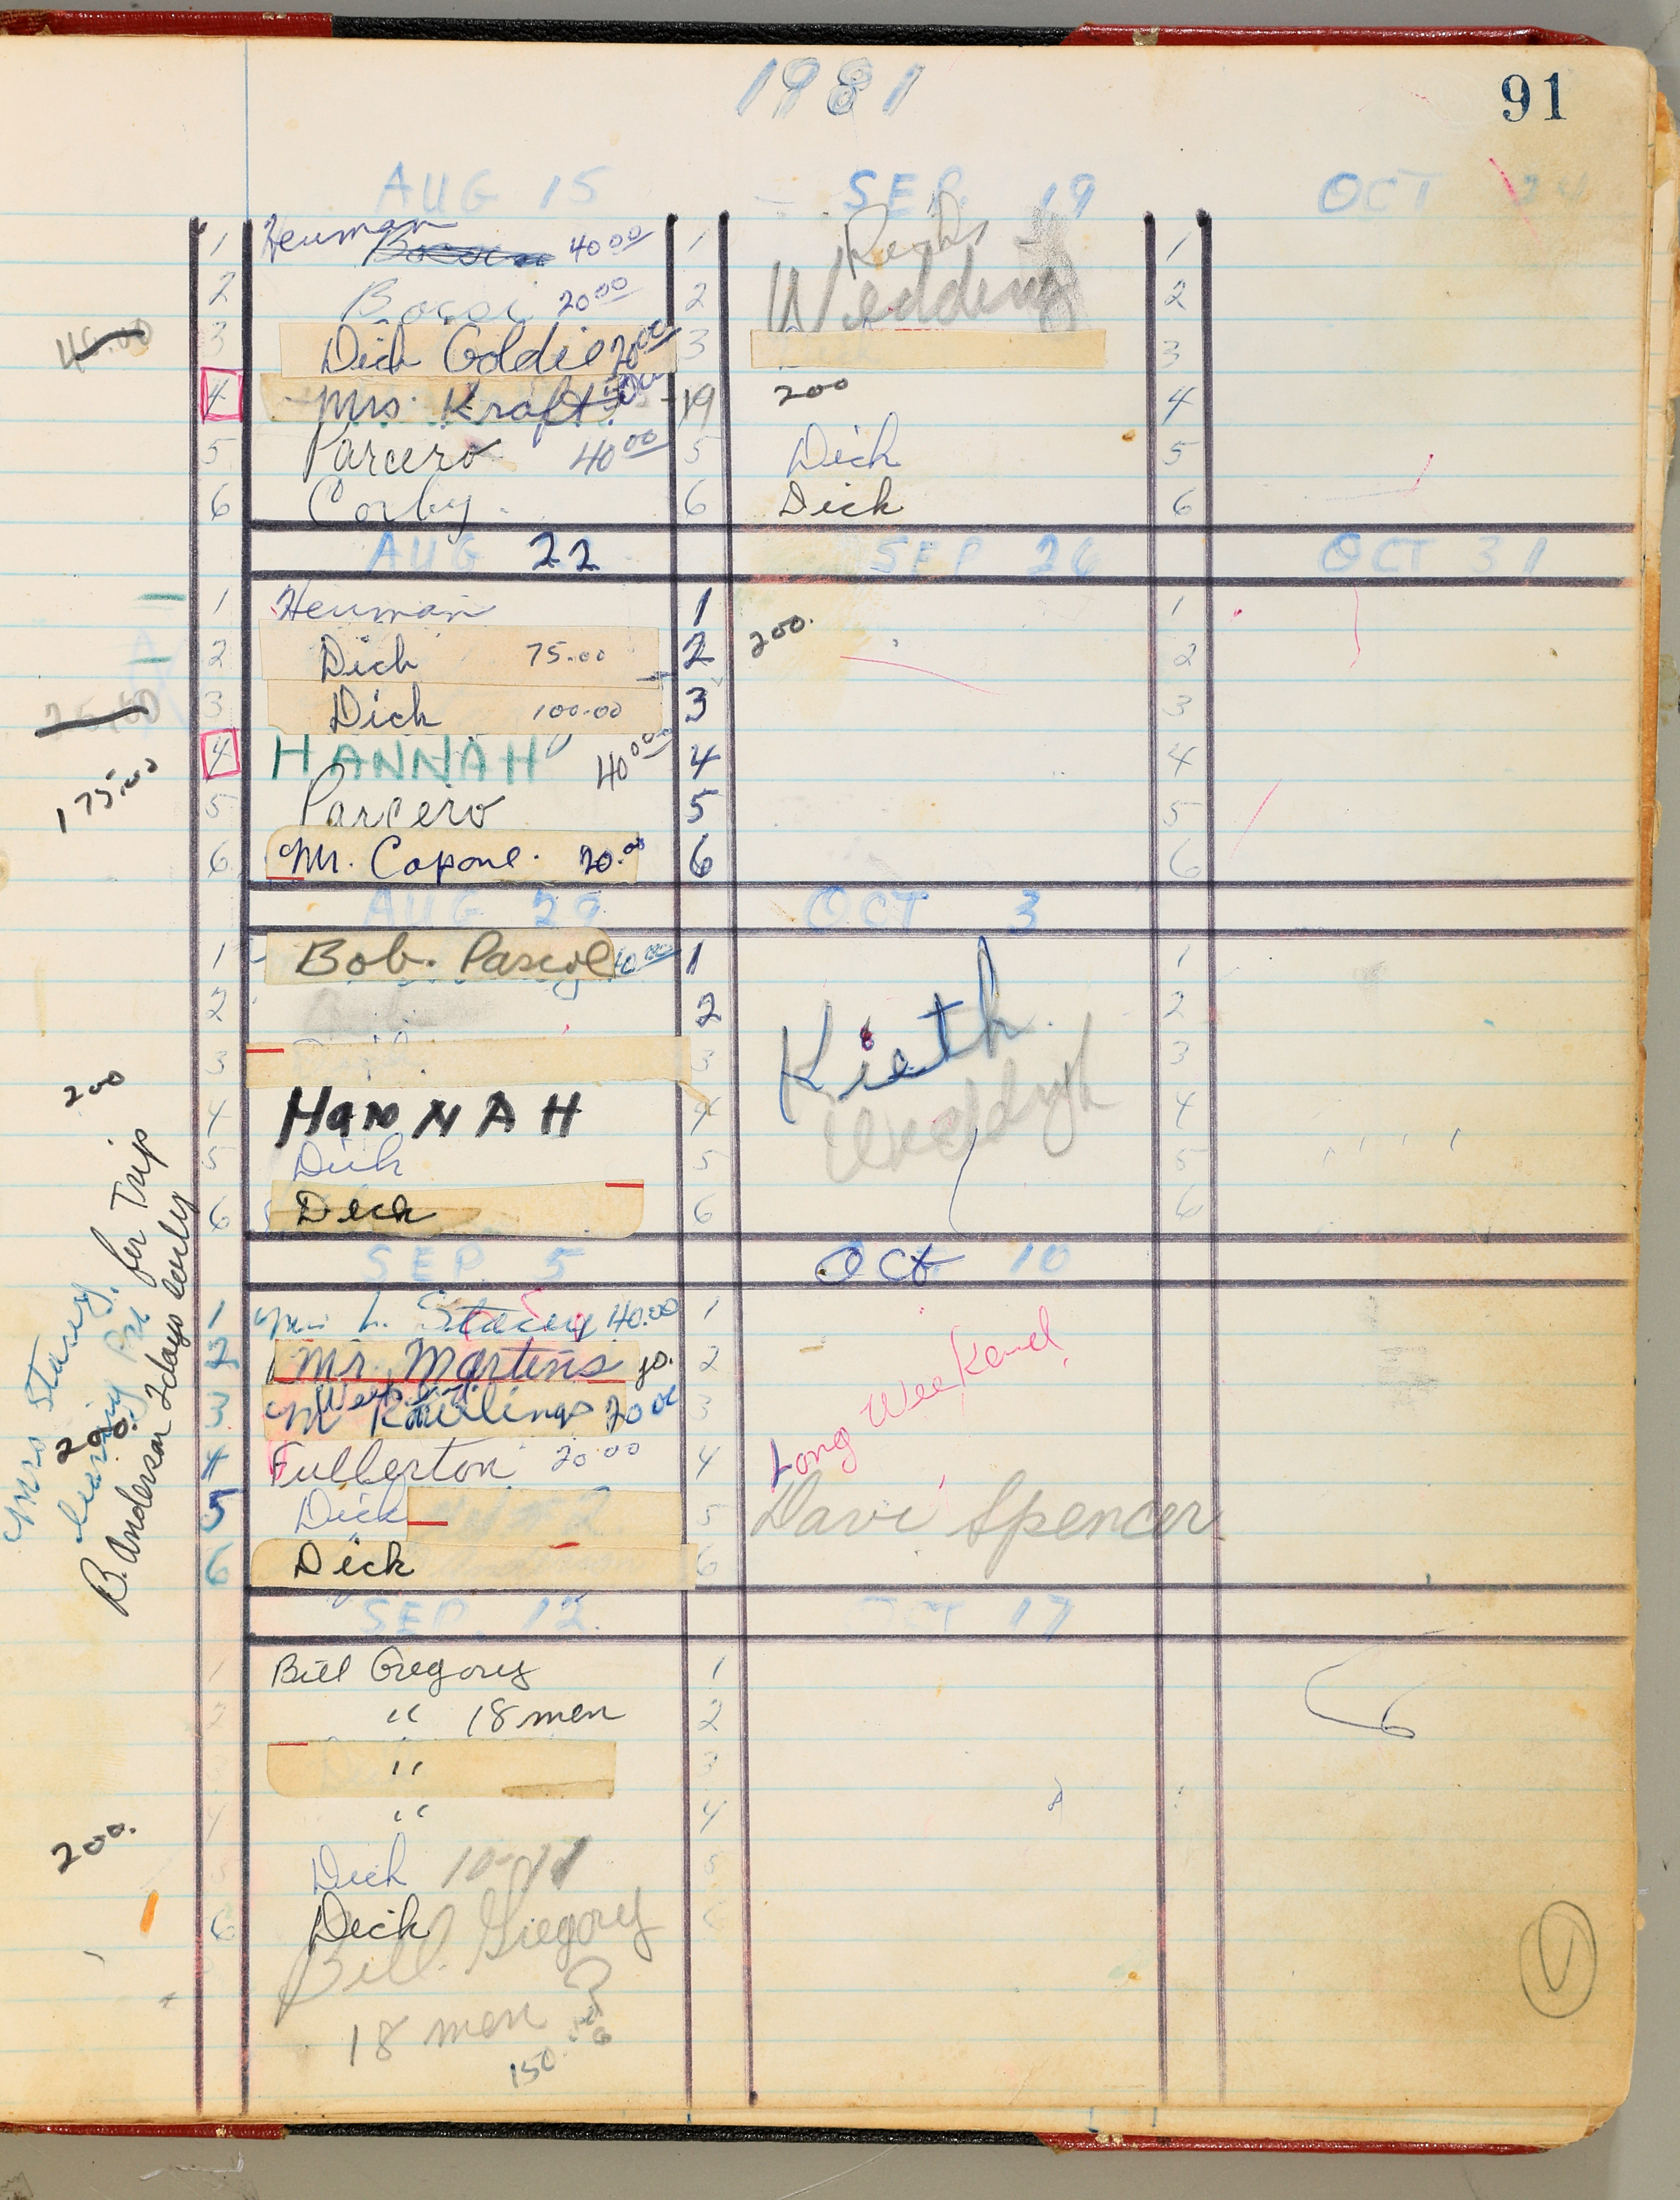 1981
91
AUG 15
1 Heuman 40.00
2 Bocci 20.00
3 Dick Goldie 20.00
45.00
4 Mrs. Kraft
5 Parcero 40.00
6 Corby
AUG 22
1 Heuman
2 Dick 75.00
3 Dick 100.00
4 HANNAH 40.00
175.00
5 Parcero
6 Mr. Capone. 20.00
AUG 29
1 Bob. Pascoe 40.00
2
3
200
4 HaNNAH
5 Dick
6 Dick
SEP 5
1 Mrs L. Stacey 40.00
2 Mr. Martins
3 Rawlings 20.00
4 Fullerton 20.00
5 Dick
6 Dick
Mrs Stacey
leaving Fri for Trip
200.
B. Anderson 2 days early
SEP. 12
1 Bill Gregory
2 " 18 men
3 "
4 "
200.
5 Dick 10-11
6 Dick
Bill Gregory
18 men ?
150.
SEP. 19
1
2 Wedding
3
19 200
5 Dick
6 Dick
SEP 26
1
2 200.
3
4
5
6
OCT 3
1
2
3 Kieth
4
5
6
Oct 10
1
2
3 Long WeeKend
4
5 Dave Spencer
6
OCT 17
1
2
3
4
5
6
OCT 24
1
2
3
4
5
6
OCT 31
1
2
3
4
5
6
1
2
3
4
5
6